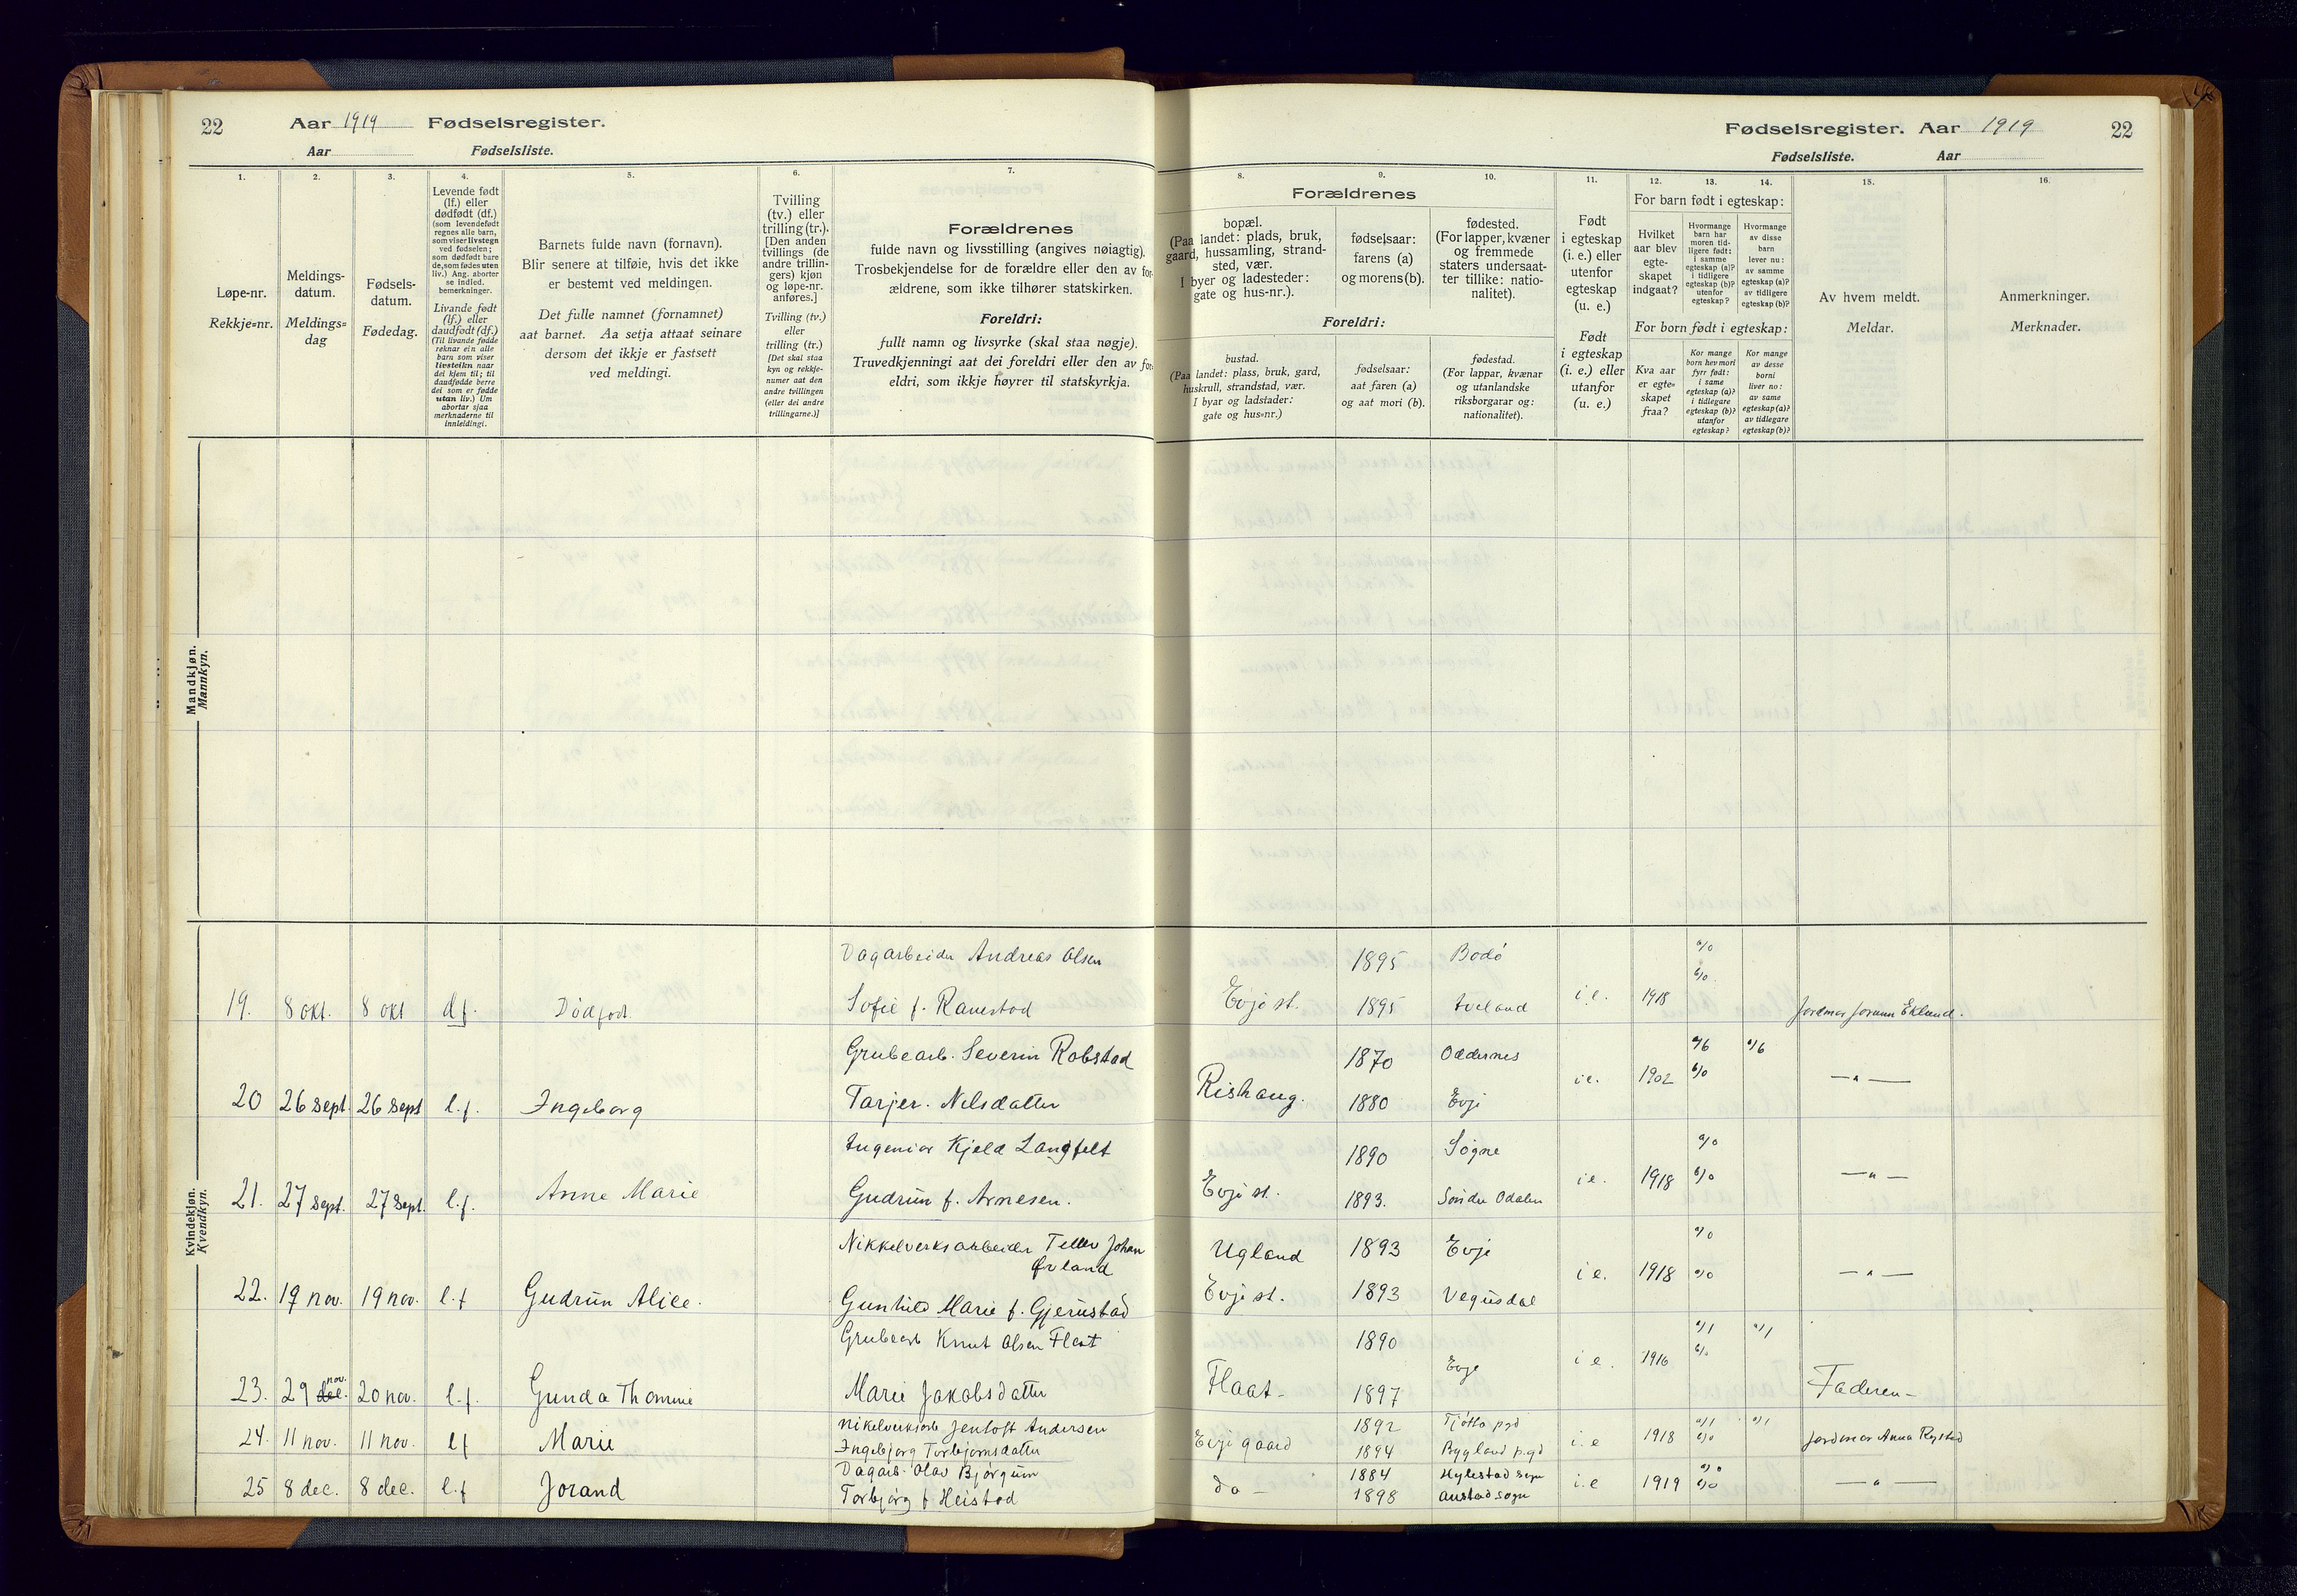 22 Aar 1919 Fødselsregister.
Aar Fødselsliste.
Fødselsregister. Aar 1919 22
Fødselsliste. Aar
1.
Løpe-nr.
Rekkje=nr.
2.
Meldings-
datum.
Meldings=
dag
3.
Fødsels-
datum.
Fødedag.
4.
Levende født
(lf.) eller
dødfødt (df.)
(som levendefødt
regnes alle barn,
som viser livstegn
ved fødselen;
som dødfødt bare
de, som fødes uten
liv.) Ang. aborter
se indled.
bemerkninger.
Livande født
(lf.) eller
daudfødt (df.)
(Til livande fødde
reknar ein alle
barn som viser
livsteikn naar
dei kjem til; til
daudfødde berre
dei som er fødde
utan liv.) Um
abortar sjaa
merknaderne til
innleidingi.
5.
Barnets fulde navn (fornavn).
Blir senere at tilføie, hvis det ikke
er bestemt ved meldingen.
Det fulle namnet (fornamnet)
aat barnet. Aa setja attaat seinare
dersom det ikkje er fastsett
ved meldingi.
6.
Tvilling
(tv.) eller
trilling (tr.).
[Den anden
tvillings (de
andre trillin-
gers) kjøn
og løpe-nr.
anføres.]
Tvilling (tv.)
eller
trilling (tr.)
[Det skal staa
kyn og rekkje-
numer aat den
andre tvillingen
(eller dei andre
trillingarne.)]
7.
Forældrenes
fulde navn og livsstilling (angives nøiagtig).
Trosbekjendelse for de forældre eller den av for-
ældrene, som ikke tilhører statskirken.
Foreldri:
fullt namn og livsyrke (skal staa nøgje).
Truvedkjenningi aat dei foreldri eller den av for-
eldri, som ikkje høyrer til statskyrkja.
Forældrenes
8.
bopæl.
(Paa landet: plads, bruk,
gaard, hussamling, strand-
sted, vær.
I byer og ladesteder:
gate og hus-nr.).
9.
fødselsaar:
farens (a)
og morens (b).
10.
fødested.
(For lapper, kvæner
og fremmede
staters undersaat-
ter tillike: natio-
nalitet).
Foreldri:
bustad.
(Paa landet: plass, bruk, gard,
huskrull, strandstad, vær.
I byar og ladstader:
gate og hus=nr.)
fødselsaar:
aat faren (a)
og aat mori (b).
fødestad.
(For lappar, kvænar
og utanlandske
riksborgarar og:
nationalitet).
11.
Født
i egteskap
(i. e.) eller
utenfor
egteskap
(u. e.)
Født
i egteskap
(i. e.) eller
utanfor
(u. e.)
12. 13. 14.
For barn født i egteskap:
Hvilket
aar blev
egte-
skapet
indgaat?
Hvormange
barn har
moren tid-
ligere født:
i samme
egteskap (a)?
i tidligere
egteskap (b)?
utenfor
egteskap?
Hvormange
av disse
barn
lever nu:
av samme
egteskap (a)?
av tidligere
egteskap (b)?
For born født i egteskap:
Kva aar
er egte=
skapet
fraa?
Kor mange
born hev mori
fyrr født:
i same
egteskap (a)?
i tidlegare
egteskap (b)?
utanfor
egteskap?
Kor mange
av desse
borni
liver no:
av same
egteskap (a)?
av tidlegare
egteskap (b)?
15.
Av hvem meldt.
Meldar.
16.
Anmerkninger.
Merknader.
Mandkjøn.
Mannkyn.
Kvindekjøn.
Kvendkyn.
Dagarbeider Andreas Olsen 1895 Bodø a/0
19. 8 okt. 8 okt df. Dødfødt. Sofie f. Ranestad Evje st. 1895 Iveland i.e. 1918 b/0 Jordmor Jorunn Eklund.
Grubearb. Severin Robstad 1870 Oddernes a/6 a/6
20 26 sept. 26 sept l.f. Ingeborg Tarjer. Nilsdatter Rishaug. 1880 Evje i.e. 1902 b/0 —"—
Ingeniør Kjeld Langfelt 1890 Søgne a/0
21. 27 sept. 27 sept. l.f. Anne Marie Gudrun f. Arnesen. Evje st. 1893. Søndre Odalen i.e. 1918 b/0 —"—
Nikkelverksarbeider Tellev Johan Ugland 1893 Evje a/0
Øvland
22. 19 nov. 19 nov. l.f Gudrun Alice. Gunhild Marie f. Gjerustad Evje st. 1893 Vegusdal i.e. 1918 a/0 —"—
Grubearb Knut Olsen Flaat 1890 a/1 a/1
23. 29 dec. nov. 20 nov. l.f. Gunda Thomine Marie Jakobsdatter Flaat- 1897 Evje i e. 1916 b/0 Faderen-
Nikelverksarb Jentoft Andersen 1892 Tjøtta pgd a/1 a/1
24. 11 nov. 11 nov. lf Marie Ingebjørg Torbjørnsdatter Evje gaard 1894 Bygland p.gd i.e 1918 b/0 Jordmor Anna Rystad
Dagarb. Olav Bjørgum 1884 Hylestad sogn a/0
25 8 dec. 8 dec. l.f Jorand Torbjørg f Heistad do- 1898 Austad sogn i.e 1919 b/0 —"—